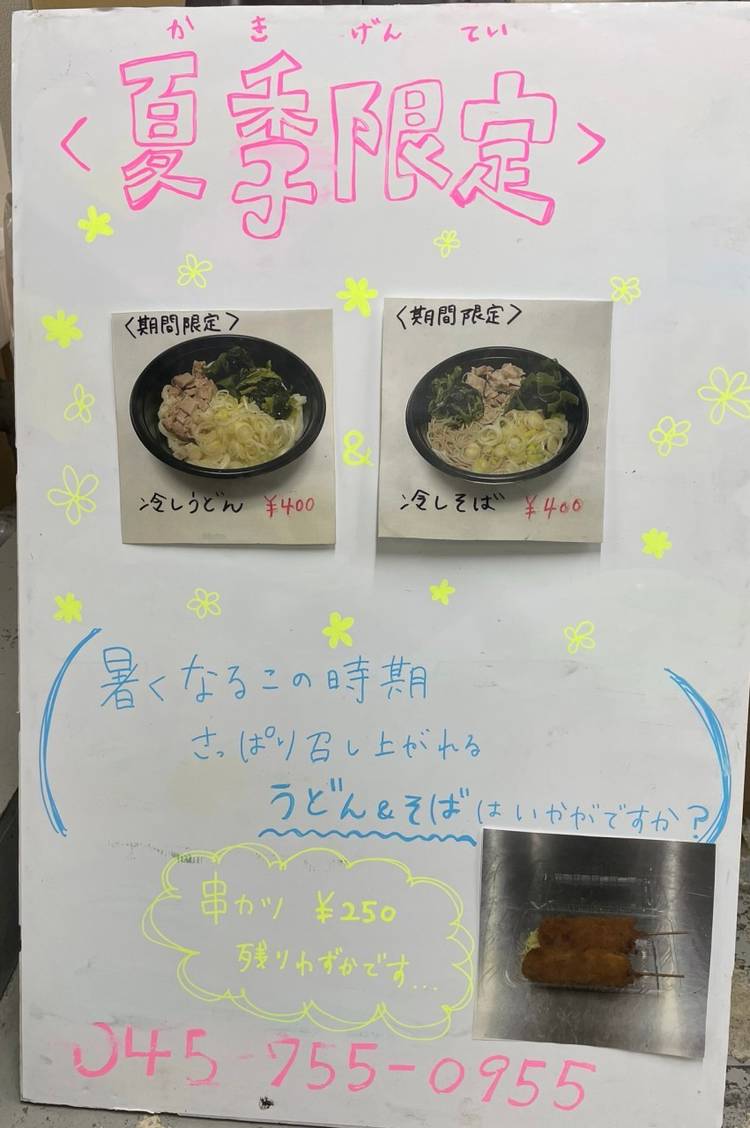 かきげんてい
〈夏季限定〉
〈期間限定〉
冷しうどん ¥400
&
〈期間限定〉
冷しそば ¥400
暑くなるこの時期
さっぱり召し上がれる
うどん&そばはいかがですか?
串カツ ¥250
残りわずかです...
045-755-0955